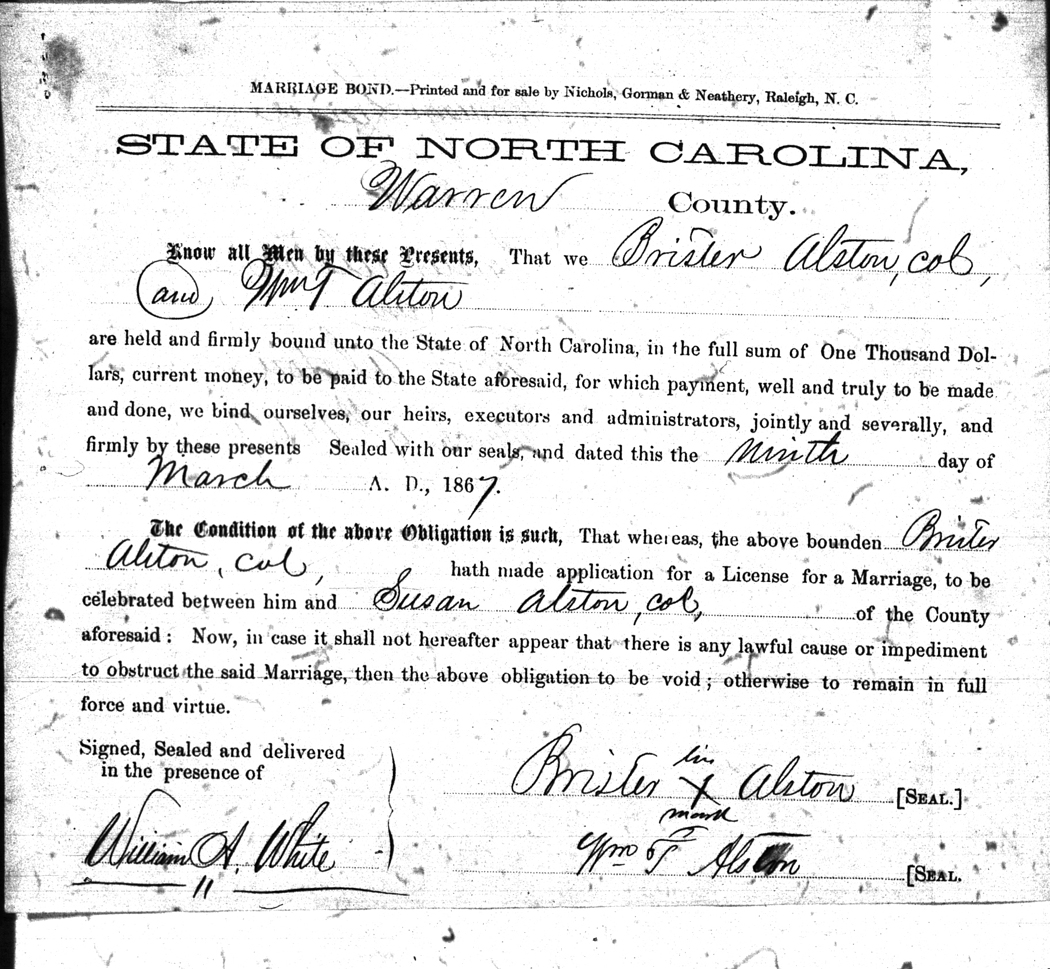 MARRIAGE BOND.—Printed and for sale by Nichols, Gorman & Neathery, Raleigh, N. C.
STATE OF NORTH CAROLINA,
Warren County.
Know all Men by these Presents, That we Brister Alston, col,
and, Wm T Alston
are held and firmly bound unto the State of North Carolina, in the full sum of One Thousand Dol-
lars, current money, to be paid to the State aforesaid, for which payment, well and truly to be made
and done, we bind ourselves, our heirs, executors and administrators, jointly and severally, and
firmly by these presents Sealed with our seals, and dated this the Ninth day of
March A. D., 1867.
The Condition of the above Obligation is such, That whereas, the above bounden Brister
Alston, col, hath made application for a License for a Marriage, to be
celebrated between him and Susan Alston, col, of the County
aforesaid: Now, in case it shall not hereafter appear that there is any lawful cause or impediment
to obstruct the said Marriage, then the above obligation to be void; otherwise to remain in full
force and virtue.
Signed, Sealed and delivered
in the presence of
William A. White
his
Brister X Alston [SEAL.]
mark
Wm T Alston [SEAL.